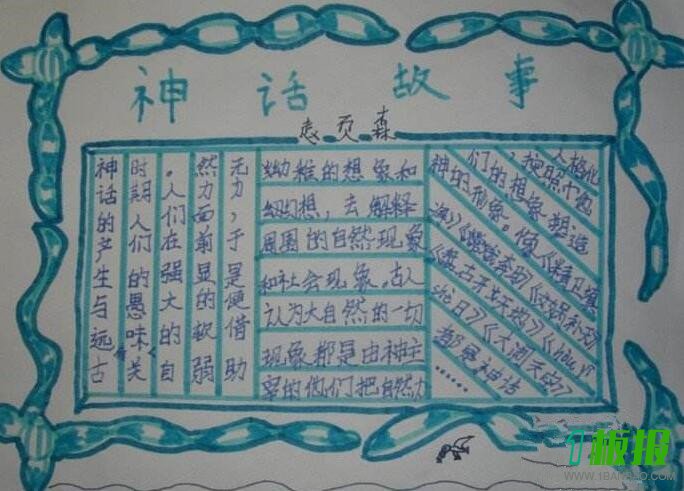 神话故事
页森
神话的产生与远古
时期人们的愚味关
。人们在强大的自
然力面前显的软弱
无力,于是便借助
幼稚的想象和
幻想,去解释
周围的自然现象
和社会现象。古人
认为大自然的一切
现象都是由神主
宰的他们把自然力
人格化
,按照
们的想象塑造
神的形象。像《精卫填
海》《嫦娥奔月》《女娲补天》
《盘古开天地》《hou yi
she日》《大闹天宫》
都是神话
……
1板报
WWW.1BANBAO.COM